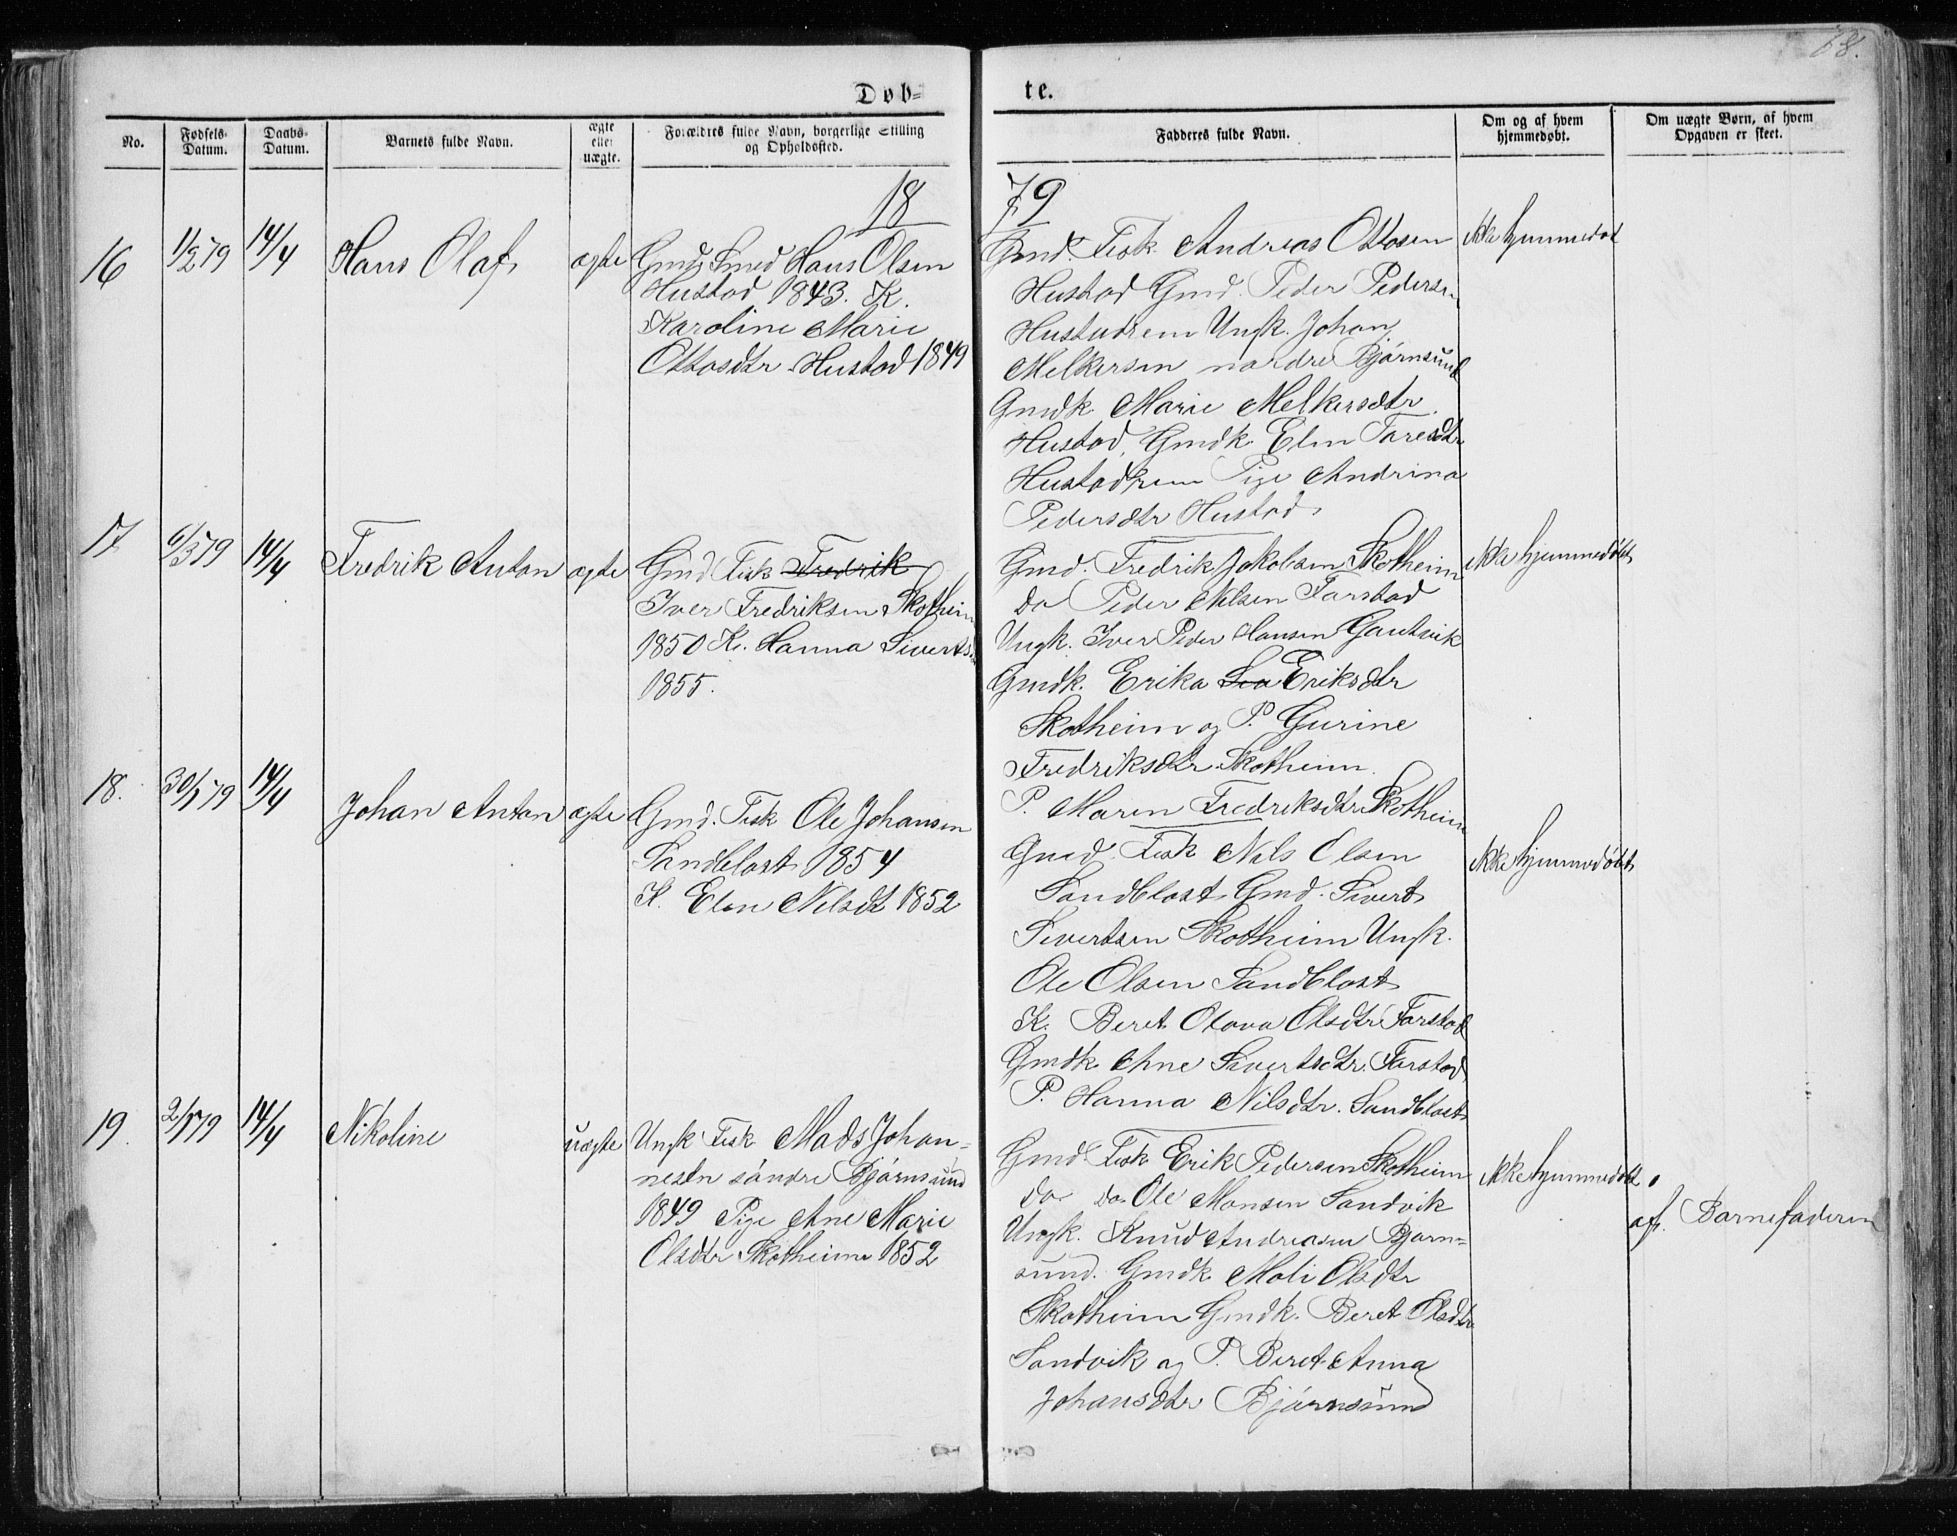 68.
Døb-
te.
No.
Fødsels-
Datum.
Daabs-
Datum.
Barnets fulde Navn.
ægte
eller
uægte.
Forældres fulde Navn, borgerlige Stilling
og Opholdssted.
Fadderes fulde Navn.
Om og af hvem
hjemmedøbt.
Om uægte Børn, af hvem
Opgaven er skeet.
18
79
16
11/2 79
14/4
Hans Olaf
ægte
Gmd Smed Hans Olsen
Hustad 1843. K.
Karoline Marie
Ottosdtr Hustad 1849
Gmd. Fisk Andreas Ottosen
Hustad Gmd. Peder Pedersen
Hustadrem Ungk. Johan
Melkersen nordre Bjørnsund
Gmdk. Marie Melkersdtr
Hustad, Gmdk. Elen Toresdtr
Hustadrem Pige Andrina
Pedersdtr Hustad
ikke hjemmedøbt
17
6/3 79
14/4
Fredrik Anton
ægte
Gmd Fisk Fredrik
Iver Fredriksen Skotheim
1850 K. Hanna Sivertsdtr
1855.
Gmd. Fredrik Jakobsen Skotheim
do Peder Nilsen Farstad
Ungk. Iver Peder Hansen Gautvik
Gmdk. Erika Eriksdtr
Skotheim og P. Gurine
Fredriksdtr Skotheim.
P. Maren Fredriksdtr Skotheim
ikke hjemmedøbt
18.
30/1 79
14/4
Johan Anton
ægte
Gmd. Fisk Ole Johansen
Sandblost 1854
K. Elen Nilsdt 1852
Gmd. Fisk Nils Olsen
Sandblost Gmd. Sivert
Sivertsen Skotheim Ungk.
Ole Olsen Sandblost
K. Beret Olava Olsdtr Farstad
Gmdk Ane Sivertsdtr. Farstad
P. Hanna Nilsdtr. Sandblost
ikke hjemmedøbt
19.
2/1 79
14/4
Nikoline
uægte
Ungk Fisk Mads Johan-
nesen søndre Bjørnsund
1849 Pige Ane Marie
Olsdtr Skotheim 1852
Gmd Fisk Erik Pedersen Skotheim
do do Ole Monsen Sandvik
Ungk. Knud Andreasen Bjørn-
sund. Gmdk Mali Olsdtr
Skotheim Gmdk. Beret Olsdtr
Sandvik og P. Beret Anna
Johansdtr Bjørnsund
ikke hjemmedøbt
af. Barnefaderen